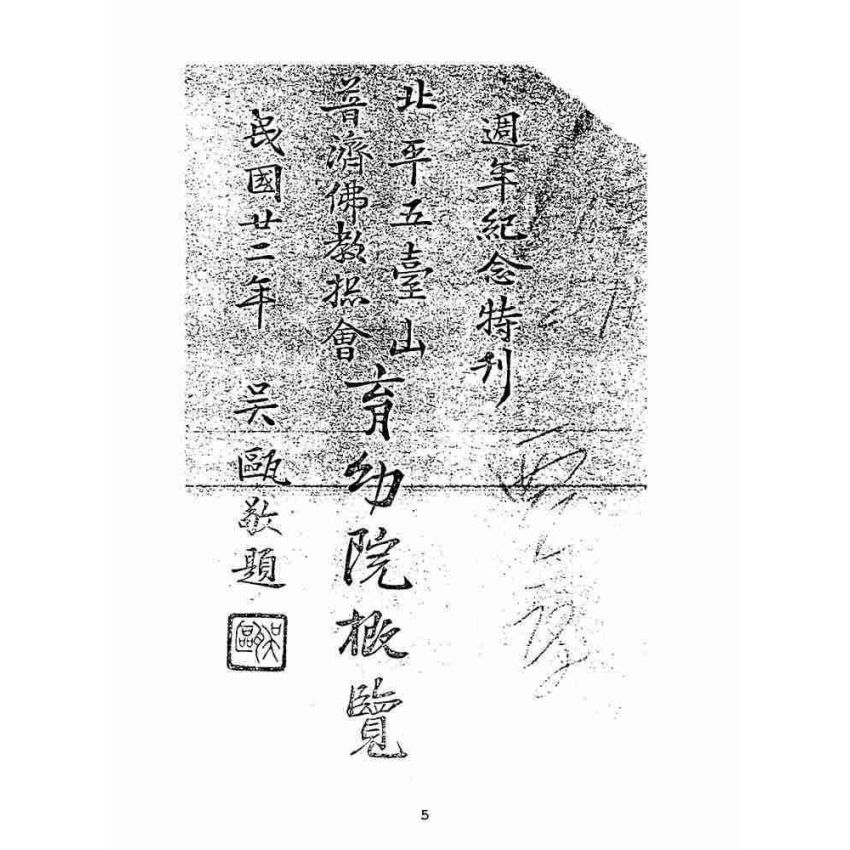 週年紀念特刊
北平五臺山
普濟佛教捴會
育幼院概覽
民國廿二年 吳甌敬題
吳甌
5